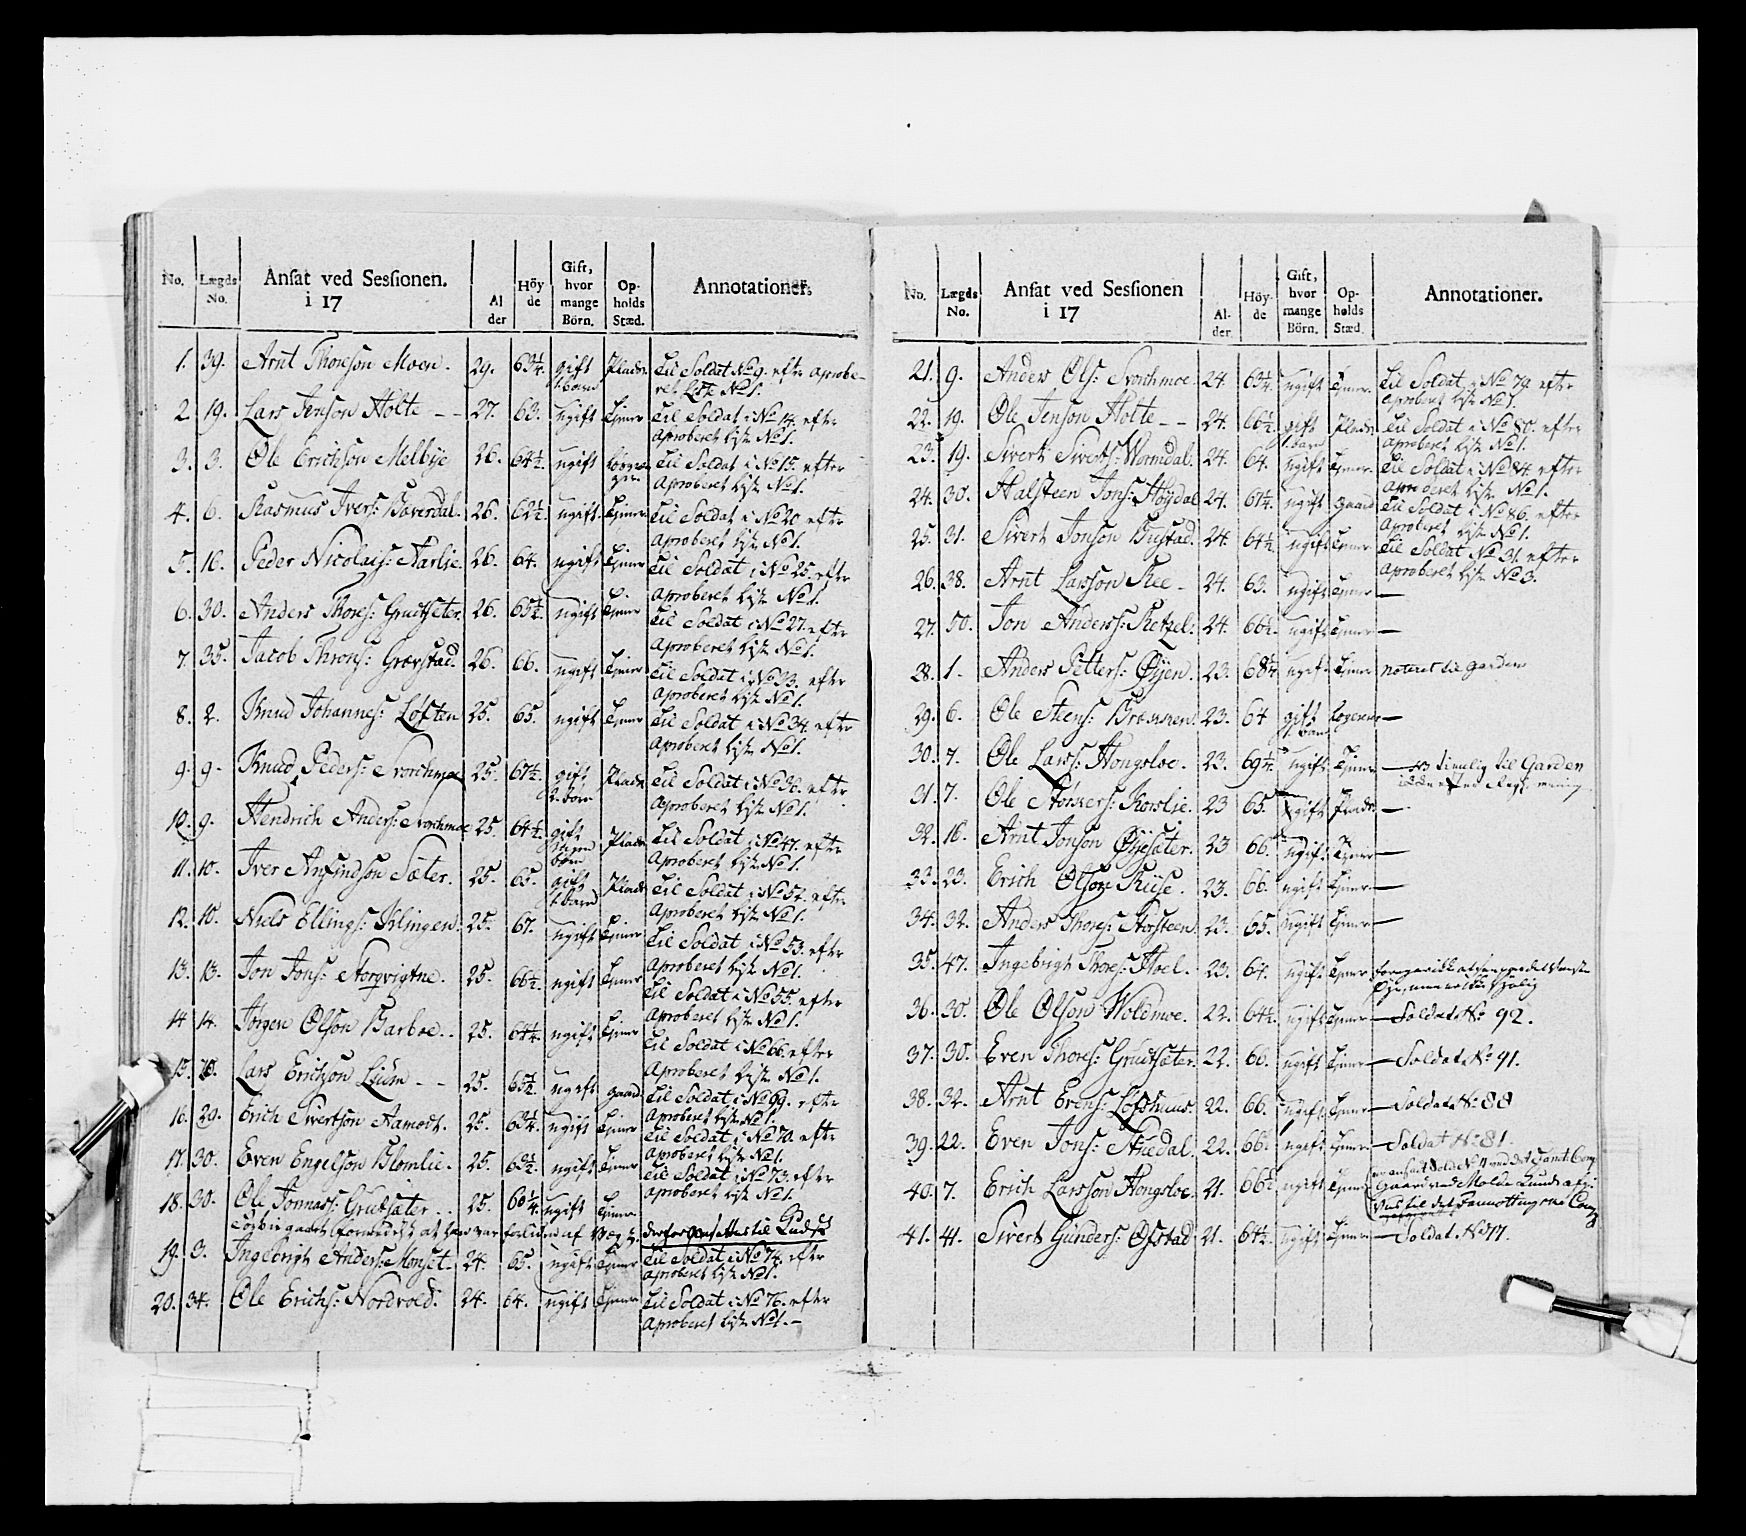 No. Lægds No. Ansat ved Sessionen. i 17 Alder Höyde Gift, hvor mange Börn. Opholds Stæd. Annotationer.
1. 39. Arnt Thoreson Moen. 29. 63¼. gift 1. barn Pladr. til Soldat No 9. efter Aprobe-
ret Liste No 1.
2. 19. Lars Jenson Holte - - 27. 63. ugift Tjener til Soldat i No 14. efter
Aproberet Liste No 1.
3. 3. Ole Erichson Melbye 26. 64½. ugift til Soldat i No 15. efter
Aproberet Liste No 1.
4. 6. Rasmus Ivers: Bøverdal. 26. 62½. ugift. Tjener til Soldat i No 20 efter
Aproberet Liste No 1.
5. 16. Peder Nicolais: Aarlie. 26. 64. ugift Tjener til Soldat i No 25. efter
Aproberet Liste No 1.
6. 30. Anders Thores: Grudtsæter. 26. 65½. ugift Tjener til Soldat i No 27. efter
Aproberet Liste No 1.
7. 35. Jacob Throns: Grævstad. 26. 66. ugift Tjener til Soldat i No 33. efter
Aproberet Liste No 1.
8. 2. Knud Johannes: Løften 25. 65. ugift Tjener til Soldat i No 34. efter
Aproberet Liste No 1.
9. 9. Knud Peders: Svorchmoe 25. 67½. gift 2. børn Pladr. til Soldat i No 36. efter
Aproberet Liste No 1.
10. 9. Hendrich Anders: Svorchmoe 25. 64½. gift ingen børn Pladr. til Soldat i No 47. efter
Aproberet Liste No 1.
11. 10. Iver Anfindson Sæter. 25. 65. gift 1. barn Pladr. til Soldat i No 52. efter
Aproberet Liste No 1.
12. 10. Niels Ellings: Klingen. 25. 67. ugift Tjener til Soldat i No 53. efter
Aproberet Liste No 1.
13. 13. Jon Jons: Storqvigtne. 25. 66½. ugift Tjener til Soldat i No 55. efter
Aproberet Liste No 1.
14 14. Jørgen Olson Barboe.. 25. 64¼. ugift Tjener til Soldat i No 66. efter
Aproberet Liste No 1.
15. Lars Erichson Lium - - 25. ugift gaard til Soldat i No 69. efter
Aproberet Liste No 1.
16. 29. Erich Sivertson Aamodt. 25. 63¼. ugift Tjener til Soldat i No 70. efter
Aproberet Liste No 1.
17. 30. Even Engelson Blomlie. 25. 63½. ugift Tjener til Soldat i No 73. efter
Aproberet Liste No 1.
18. 30. Ole Jonnas: Grutsæter.. 25. 60¼. ugift Tjener
forbigaaet formedelst at han var af derfor
19. 3. Ingebrigt Anders: Monset. 24. 65. ugift Tjener til Soldat i No 74. efter
Aproberet Liste No 1.
20. 34. Ole Erichs: Nordvold. 24. 64. ugift Tjener til Soldat i No 76. efter
Aproberet Liste No 1. -
No. Lægds No. Ansat ved Sessionen i 17 Alder. Höyde Gift, hvor mange Börn. Opholds Stæd. Annotationer.
21. 9. Anders Ols: Svorchmoe. 24. 63¼. ugift Tjener. til Soldat i No 79. efter
Aproberet Liste No 1.
22. 19. Ole Jenson Holte - - 24. 66½. gift 1. barn Pladr. til Soldat i No 80. efter
Aproberet Liste No 1.
23. 19. Sivert Siverts: Wormdal. 24. 64. ugift Tjener. til Soldat i No 84. efter
Aproberet Liste No 1.
24. 30. Halsteen Jons: Høydal 24. 61¼. ugift gaard til Soldat i No 86. efter
Aproberet Liste No 1.
25. 31. Sivert Jonson Bustad. 24. 64½ ugift Tjener. til Soldat No 31. efter
Aproberet Liste No 3.
26. 38. Arnt Larsson Ree - 24. 63. ugift Tjener —
27. 50. Jon Anders: Ketzel: 24. 66½. ugift Tjener —
28. 1. Anders Petters: Øyen. 23. 68¼ ugift Tjener Noteret til Garden
29. 6. Ole Steens: Brønnen. 23. 64 gift 1. barn Logerer —
30. 7. Ole Lars: Hongsloe. 23. 69¼. ugift Tjener — NB timelig til Garden
31. 7. Ole Størkers: Korslie. 23 65. ugift Pladr. —
32. 16. Arnt Jonson Øyesæter. 23 66. ugift Tjener —
33. 23. Erich Olson Riise. 23. 66. ugift Tjener —
34. 32. Anders Thores: Storsteen. 23. 65. ugift Tjener —
35. 47. Ingebrigt Thores: Hoel. 23. 64. ugift Tjener
36. 30. Ole Olson Woldmoe. 22. 64½. ugift Tjener — Soldat No 92.
37. 30. Even Thores: Grudtsæter. 22. 66. ugift Tjener — Soldat No 91.
38. 32. Arnt Evens: Løfshuus. 22. 66. ugift Tjener — Soldat No 88
39. 22. Even Jons: Stuedal. 22. 66. ugift Tjener — Soldat No 81.
40. 7. Erich Larsson Hongsloe. 21. 66½ ugift Tjener
41. 41. Sivert Gunders: Øfstad 21. 64½. ugift Tjener — Soldat No 77.